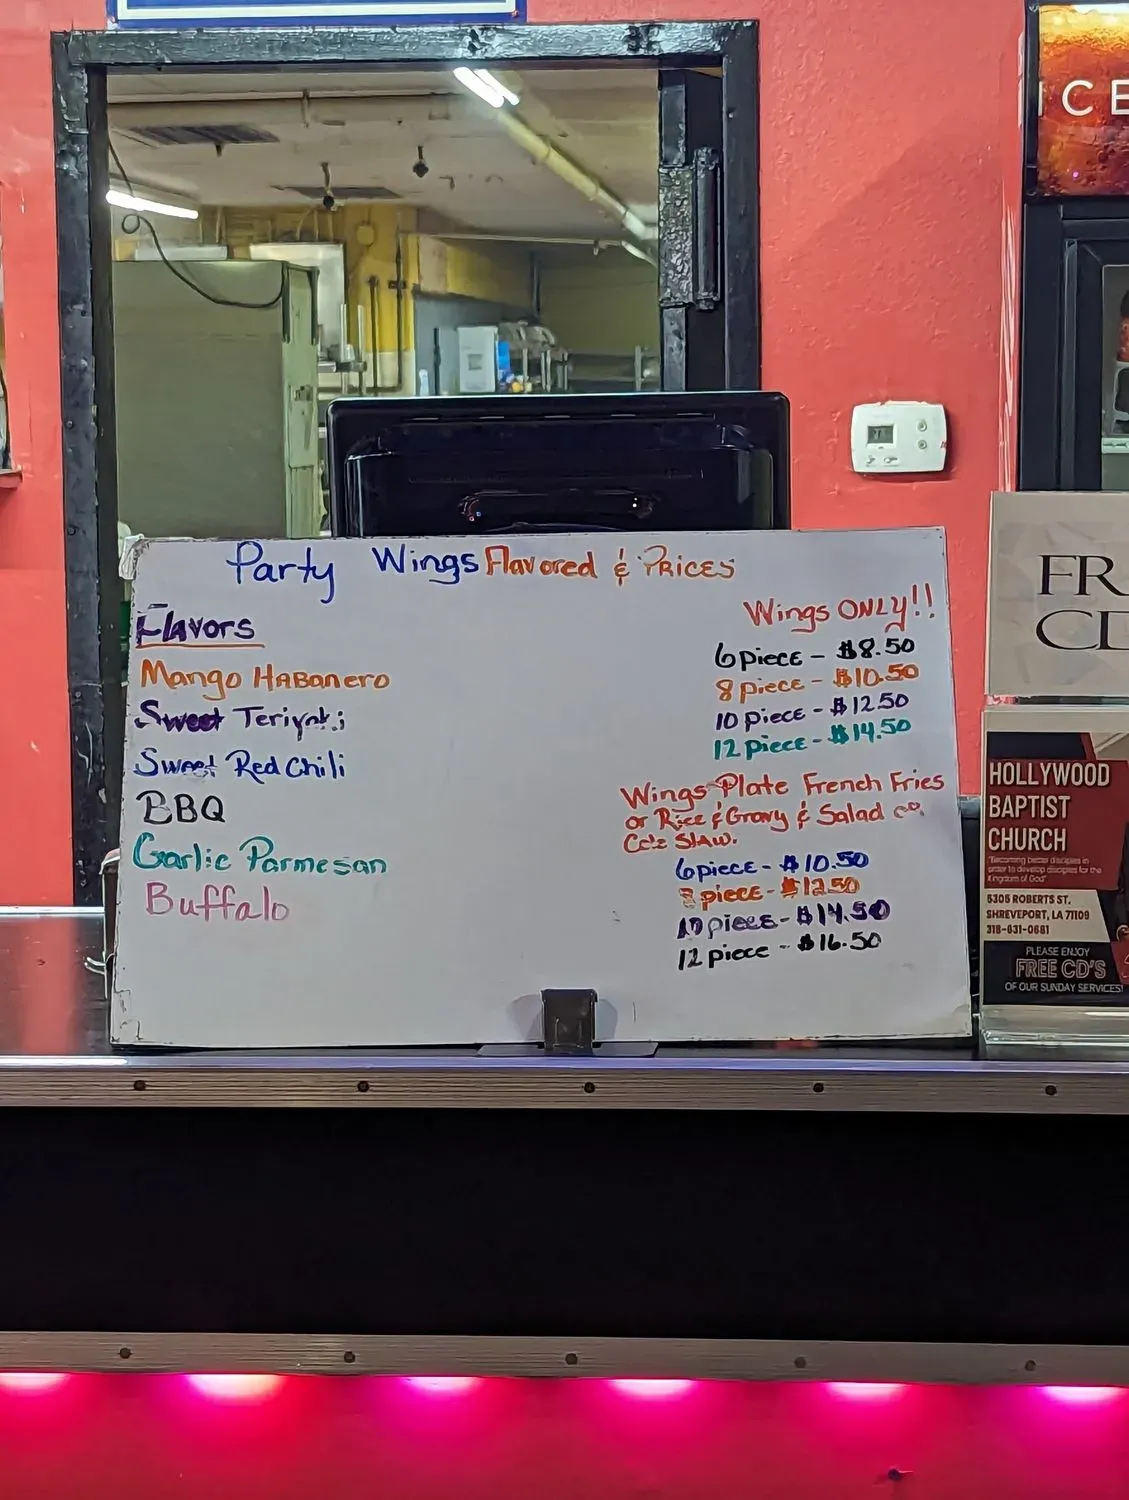 Party Wings Flavored & PRICES
Flavors
Mango HABanero
Sweet Teriyaki
Sweet Red Chili
BBQ
Garlic Parmesan
Buffalo
Wings ONLY!!
6 piece - $8.50
8 piece - $10.50
10 piece - $12.50
12 piece - $14.50
Wings Plate French Fries
or Rice & Gravy & Salad or
Cole Slaw.
6 piece - $10.50
8 piece - $12.50
10 piece - $14.50
12 piece - $16.50
ICE
FR
HOLLYWOOD
BAPTIST
CHURCH
"Becoming better disciples in
order to develop disciples for the
Kingdom of God"
5305 ROBERTS ST.
SHREVEPORT, LA 71109
318-631-0681
PLEASE ENJOY
FREE CD'S
OF OUR SUNDAY SERVICES!